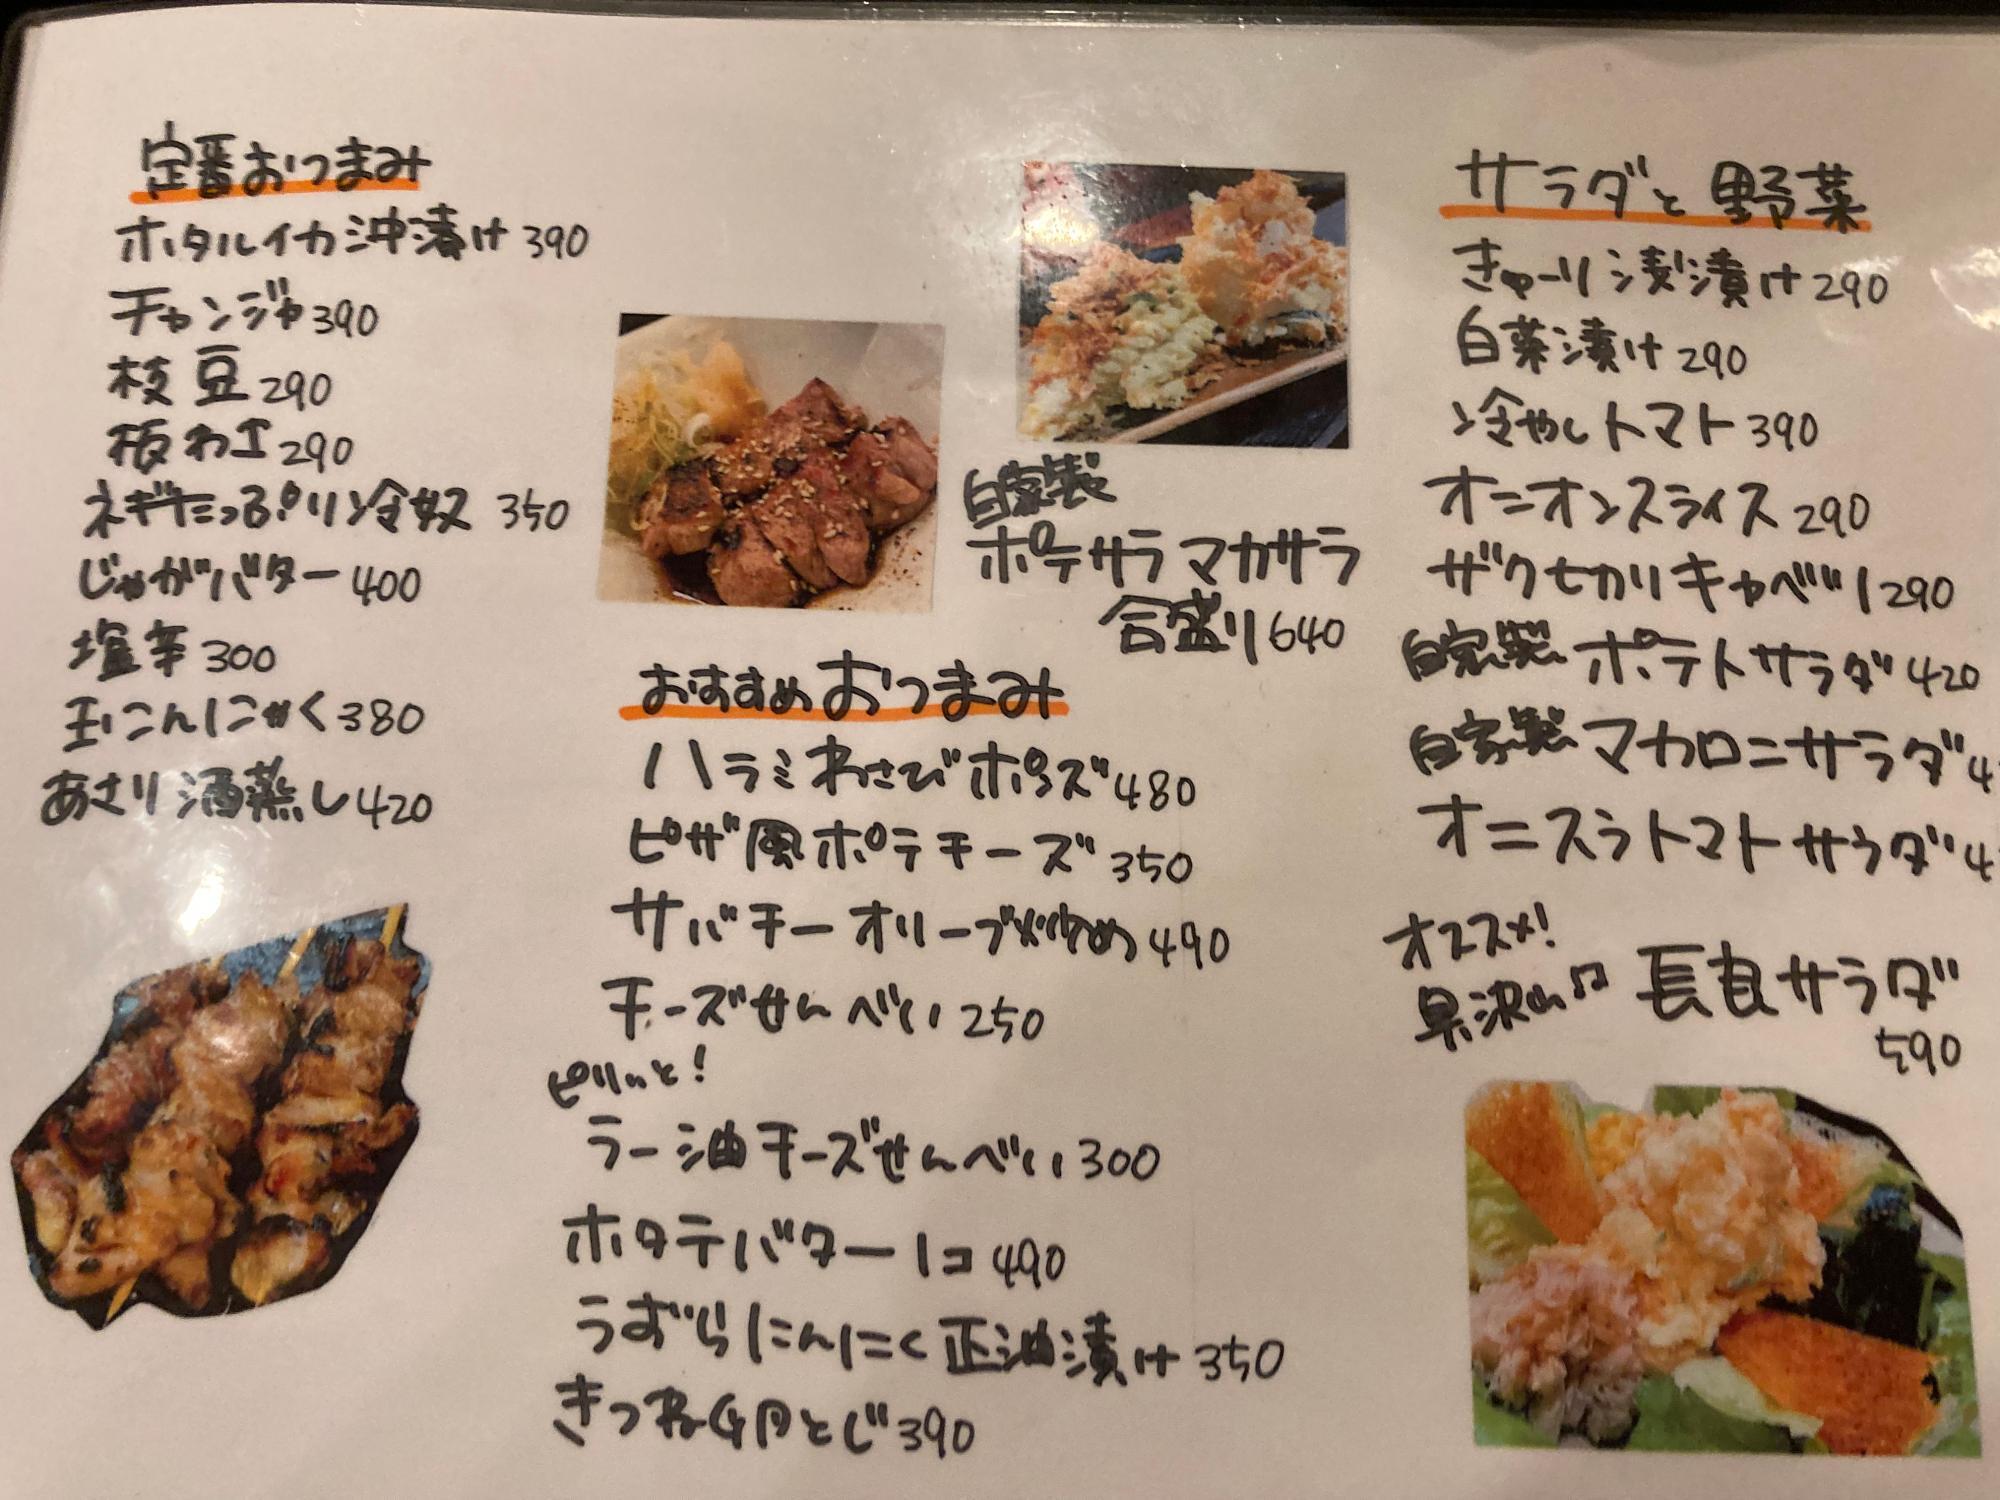 定番おつまみ
ホタルイカ沖漬け 390
チャンジャ 390
枝豆 290
板わさ 290
ネギたっぷり冷奴 350
じゃがバター 400
塩辛 300
玉こんにゃく 380
あさり酒蒸し 420
自家製
ポテサラ マカサラ
合盛り 640
おすすめおつまみ
ハラミわさびポン酢 480
ピザ風ポテチーズ 350
サバチーオリーブ炒め 490
チーズせんべい 250
ピリッと!
ラー油チーズせんべい 300
ホタテバター 1コ 490
うずらにんにく正油漬け 350
きつね卵とじ 390
サラダと野菜
きゅーり浅漬け 290
白菜漬け 290
冷やしトマト 390
オニオンスライス 290
ザク切りキャベツ 290
自家製 ポテトサラダ 420
自家製 マカロニサラダ 4
オニスラトマトサラダ 4
オススメ!
具沢山 長良サラダ
590